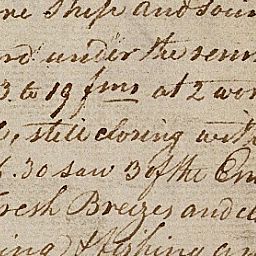 ne Ship and Soun
rd under the
3 to 19 fms at 2
, still closing with
6.30 saw 3 of the En
Fresh Breezes and cl
ing & fishing